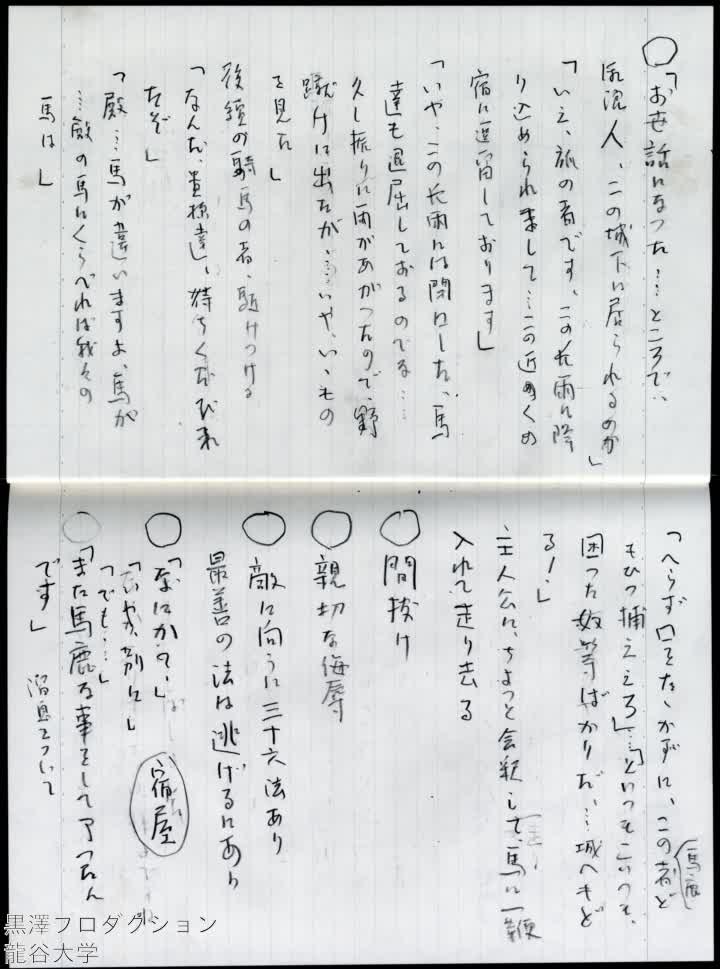 ○「お世話になった……ところで、
浪人、この城下に居られるのか」
「いえ、旅の者です、この長雨に降
り込められまして…この近くの
宿に逗留しております」
「いや、この長雨には閉口した、馬
達も退屈しておるのでる…
久し振りに雨があがつたので、野
駆けに出たが、…いや、いいもの
を見た」
後続の騎馬の者、駈けつける
「なんだ、貴様達、待ちくたびれ
たぞ」
「殿…馬が違いますよ、馬が
…殿の馬にくらべれば我々の
馬は」
「へらず口をたゝかずに、この者ど
もひつ捕えろ」…「どいつもこいつも、
困つた奴等ばかりだ…城へもど
る！」
主人公に、ちょつと会釈して、馬に一鞭
入れて走り去る
○間抜け
○親切な侮辱
○敵に向うに三十六法あり
最善の法は逃げるにあり
○「なにかの、」
「いや、別に」
「でも…」
宿屋
○「また馬鹿な事をして了つたん
です」
黒澤プロダクション
龍谷大学